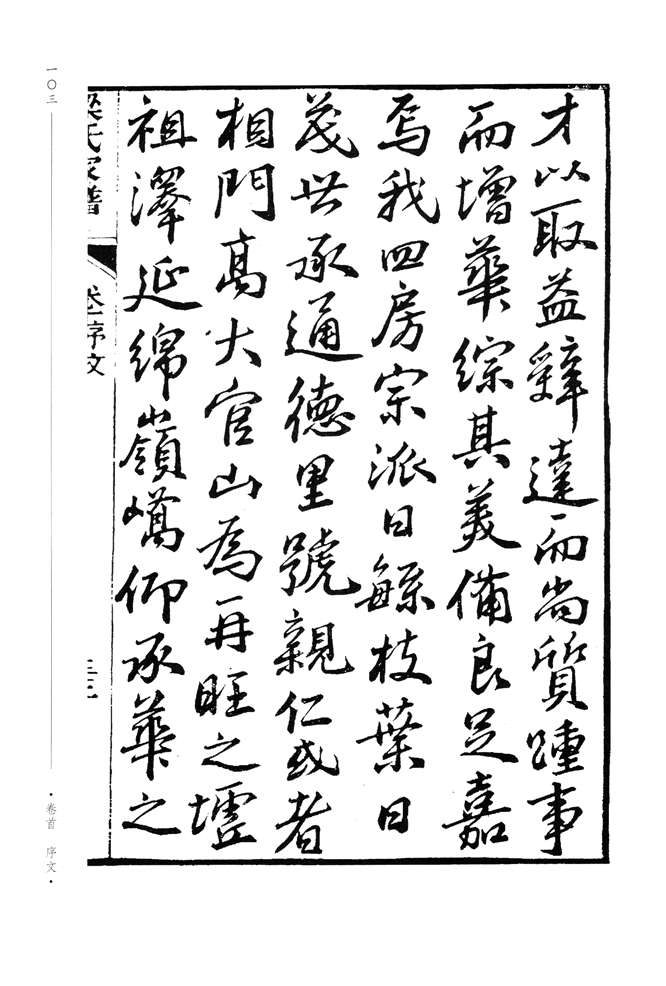 才以取益辭達而尚質踵事
而增華綜其美備良足嘉
焉我四房宗派日繇枝葉日
茂世承通德里號親仁或者
相門高大官山為再旺之墟
祖澤延綿嶺嶠仰承華之
梁氏家譜
卷一序文
三三
一〇三
·卷首 序文·